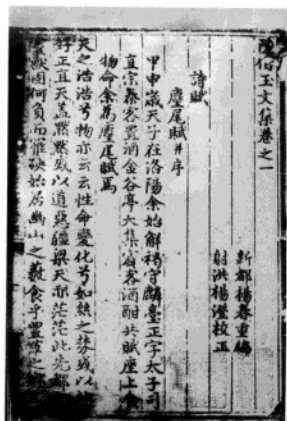 陳伯玉文集卷之一
新都楊春重編
射洪楊澄校正
詩賦
麈尾賦并序
甲申歲天子在洛陽余始解褐守麟臺正字太子司
直宗秦客置酒金谷亭大集賓客酒酣共賦座上食
物命余爲麈尾賦焉
天之浩浩兮物亦云云性命變化兮如絲之棼或以
好正直天蓋默默或以道惡疆梁天亦茫茫此先都
獸固何負而罹殃始居幽山之藪食乎豐草之